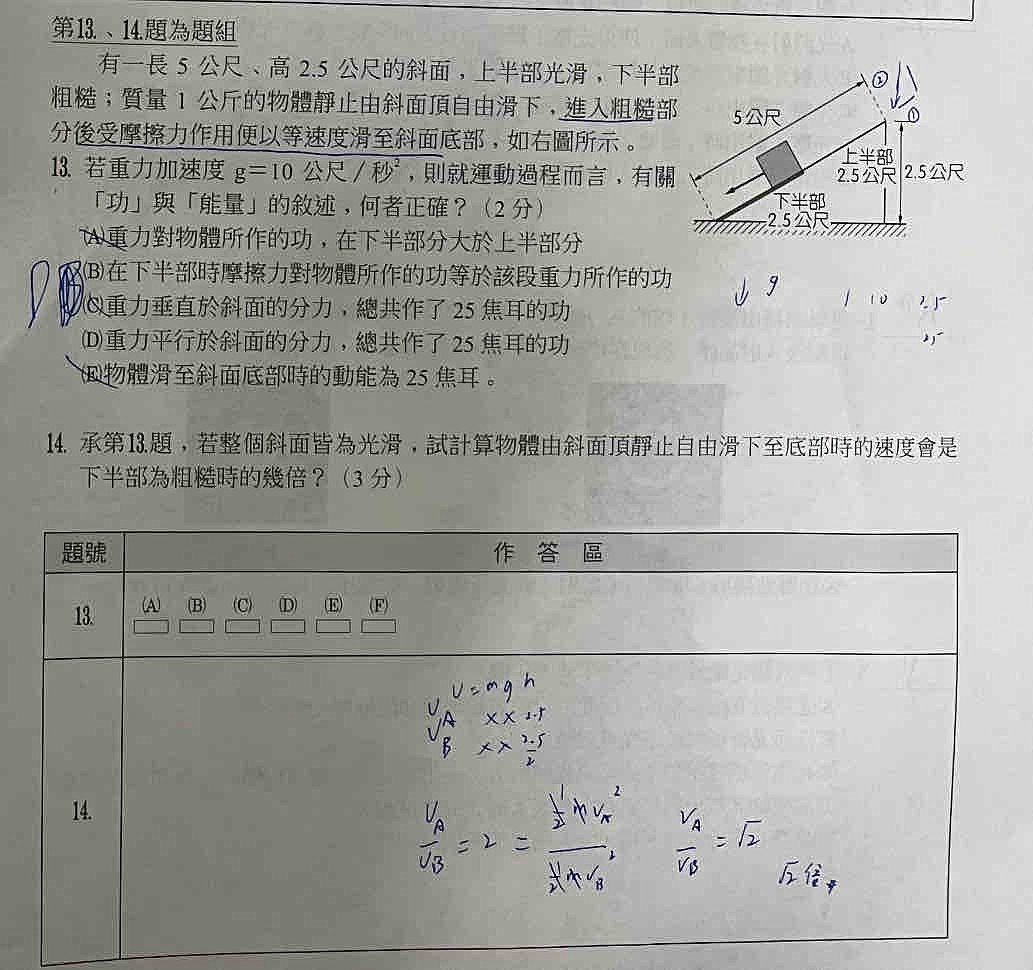 第13.、14.題為題組
有一長 5 公尺、高 2.5 公尺的斜面,上半部光滑,下半部
粗糙;質量 1 公斤的物體靜止由斜面頂自由滑下,進入粗糙部
分後受摩擦力作用便以等速度滑至斜面底部,如右圖所示。
5公尺
②
①
上半部
2.5公尺
2.5公尺
下半部
2.5公尺
13. 若重力加速度 g=10 公尺/秒²,則就運動過程而言,有關
「功」與「能量」的敘述,何者正確?(2 分)
(A)重力對物體所作的功,在下半部分大於上半部分
(B)在下半部時摩擦力對物體所作的功等於該段重力所作的功
(C)重力垂直於斜面的分力,總共作了 25 焦耳的功
(D)重力平行於斜面的分力,總共作了 25 焦耳的功
(E)物體滑至斜面底部時的動能為 25 焦耳。
D B
↓ g
1 10 2.5
14. 承第13.題,若整個斜面皆為光滑,試計算物體由斜面頂靜止自由滑下至底部時的速度會是
下半部為粗糙時的幾倍?(3 分)
題號
作 答 區
13.
(A) (B) (C) (D) (E) (F)
14.
U=mgh
UA ×× 2.5
UB ×× 2.5/2
UA/UB = 2 = ½mVA²/½mVB²
VA/VB = √2
√2倍